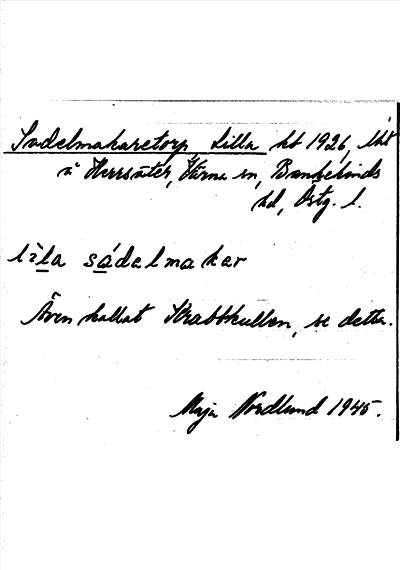 Sadelmakaretorp, Lilla ht 1926, tht
u Herrsäter, Värna sn, Bankekinds
hd, Östg. l.
lìla sádelmakar
Även kallat Skrabbkullen, se detta.
Maja Nordlund 1945.